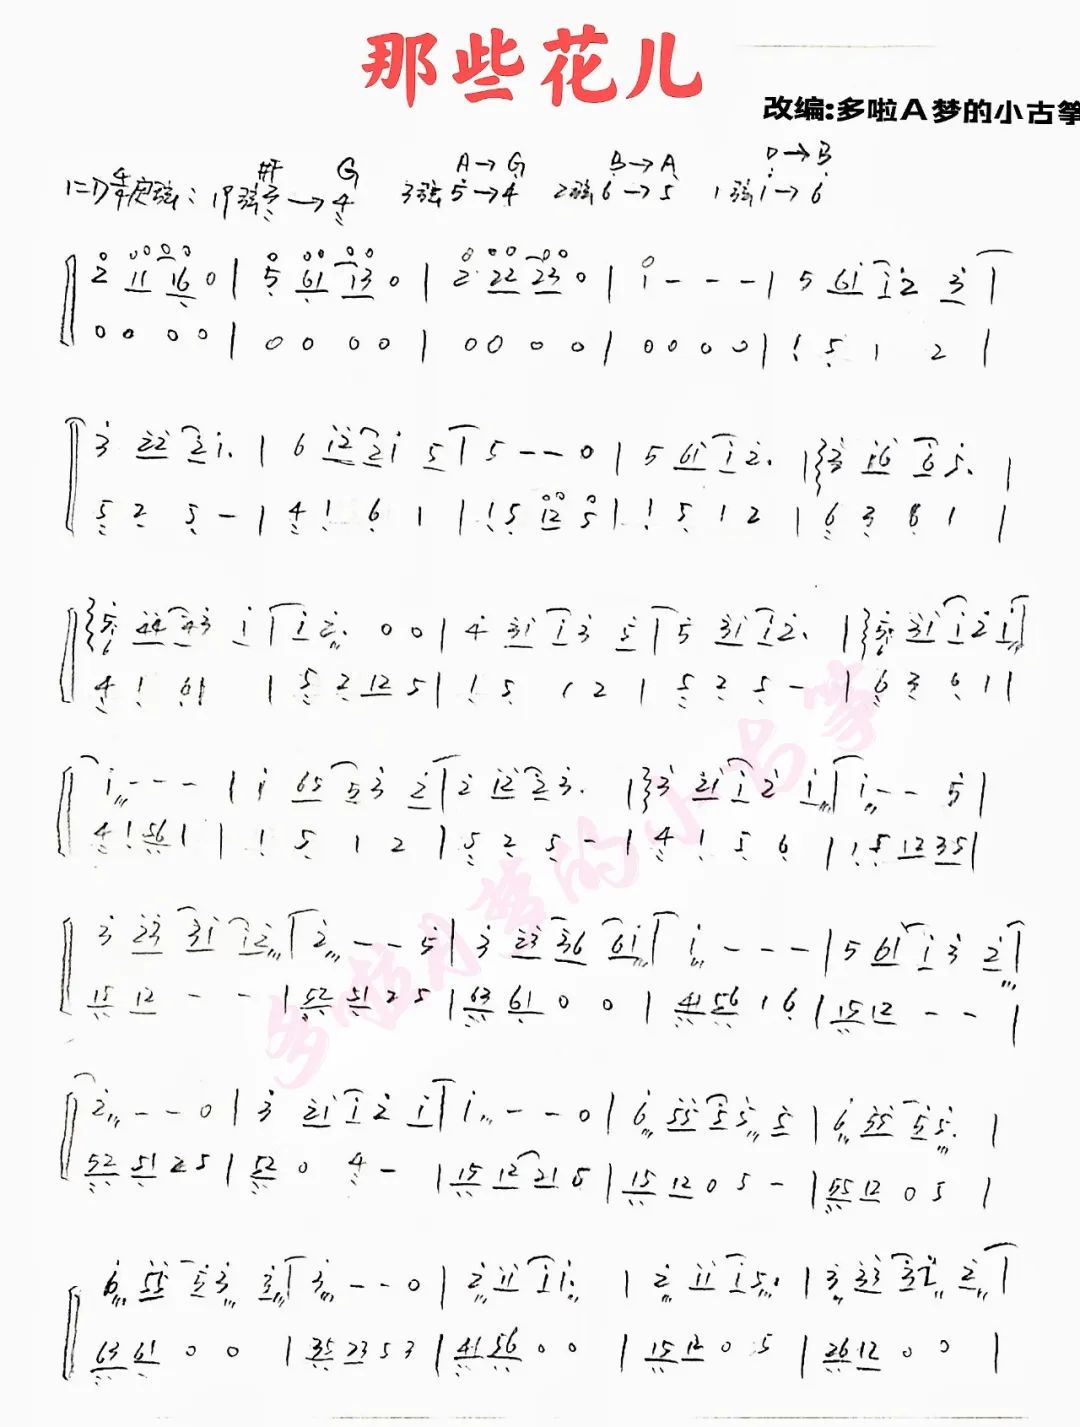 那些花儿
改编:多啦A梦的小古筝
#F G A→G B→A D→B
1=D 4/4 定弦: 19弦3→4 3弦5→4 2弦6→5 1弦i→6
2 11 16 0 | 5 61 13 0 | 2 22 23 0 | i - - - | 5 61 i2 3 |
0 0 0 0 | 0 0 0 0 | 0 0 0 0 | 0 0 0 0 | 1 5 1 2 |
3 22 2i. | 6 12 2i 5 | 5 - - 0 | 5 61 i2. | 2 i6 65. |
5 2 5 - | 4 1 6 1 | 1 5 12 5 | 1 5 1 2 | 6 3 6 1 |
5 44 43 i | i2. 0 0 | 4 31 i3 5 | 5 31 i2. | 5 31 i2 i |
4 1 61 | 5 2 12 5 | 1 5 1 2 | 5 2 5 - | 6 3 6 1 |
i - - - | i 65 53 2 | 2 12 23. | 3 21 i2 i | i - - 5 |
4 1 56 1 | 1 5 1 2 | 5 2 5 - | 4 1 5 6 | 1 5 12 35 |
3 23 31 12 | 2 - - 5 | 3 23 36 61 | i - - - | 5 61 i3 2 |
15 12 - - | 52 51 2 5 | 63 61 0 0 | 41 56 1 6 | 15 12 - - |
2 - - 0 | 3 21 i2 i | i - - 0 | 6 55 55 5 | 6 55 55. |
52 51 2 5 | 52 0 4 - | 15 12 21 5 | 15 12 0 5 - | 55 12 0 5 |
6 55 53 3 | 3 - - 0 | 2 11 11. | 2 11 15. | 3 33 32 2 |
63 61 0 0 | 35 23 5 3 | 41 56 0 0 | 15 12 0 5 | 26 12 0 0 |
多啦A梦的小古筝